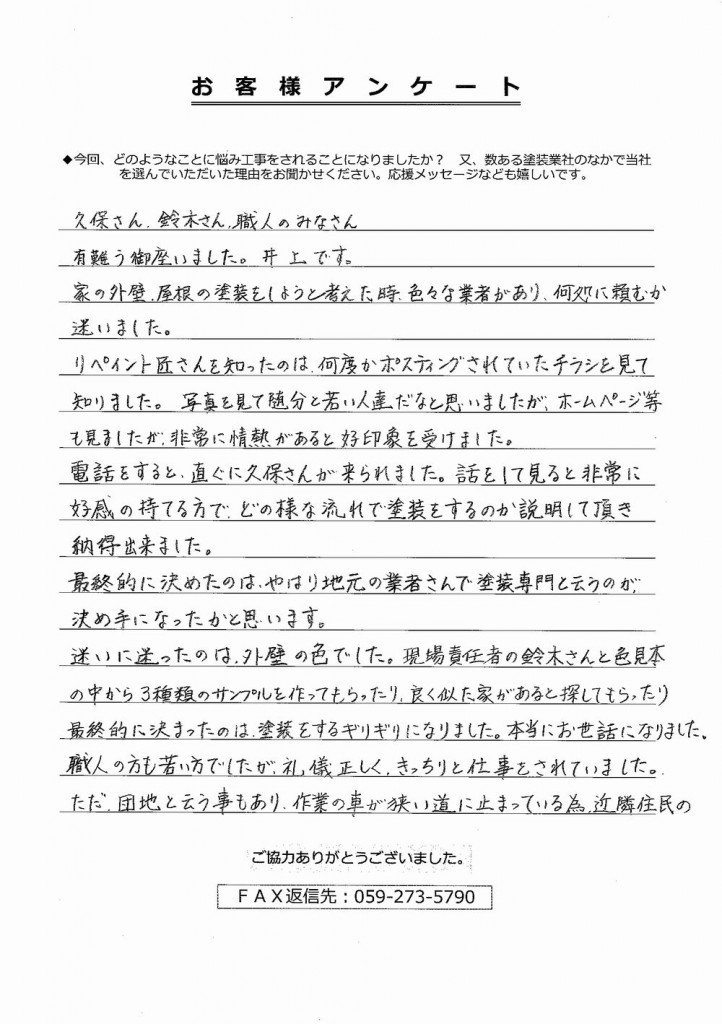 お客様アンケート
◆今回、どのようなことに悩み工事をされることになりましたか？　又、数ある塗装業社のなかで当社
を選んでいただいた理由をお聞かせください。応援メッセージなども嬉しいです。
久保さん、鈴木さん、職人のみなさん
有難う御座いました。井上です。
家の外壁、屋根の塗装をしようと考えた時、色々な業者があり、何処に頼むか
迷いました。
リペイント匠さんを知ったのは、何度かポスティングされていたチラシを見て
知りました。写真を見て随分と若い人達だなと思いましたが、ホームページ等
も見ましたが、非常に情熱があると好印象を受けました。
電話をすると、直ぐに久保さんが来られました。話をして見ると非常に
好感の持てる方で、どの様な流れで塗装をするのか説明して頂き
納得出来ました。
最終的に決めたのは、やはり地元の業者さんで塗装専門と云うのが、
決め手になったかと思います。
迷いに迷ったのは、外壁の色でした。現場責任者の鈴木さんと色見本
の中から3種類のサンプルを作ってもらったり、良く似た家があると探してもらったり
最終的に決まったのは、塗装をするギリギリになりました。本当にお世話になりました。
職人の方も若い方でしたが、礼儀正しく、きっちりと仕事をされていました。
ただ、団地と云う事もあり、作業の車が狭い道に止まっている為、近隣住民の
ご協力ありがとうございました。
ＦＡＸ返信先：059-273-5790